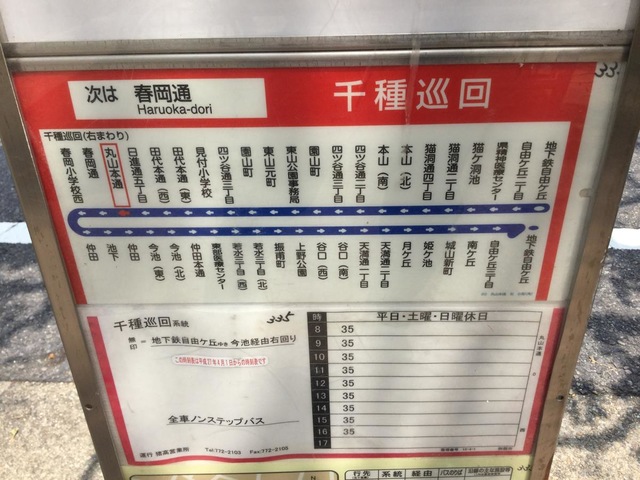 次は 春岡通
Haruoka-dori
千種巡回
335
千種巡回(右まわり)
春岡小学校西
春岡通
丸山本通
日進通五丁目
田代本通(西)
田代本通(東)
見付小学校
四ツ谷通三丁目
園山町
東山元町
東山公園事務局
園山町
四ツ谷通三丁目
四ツ谷通二丁目
本山(南)
本山(北)
猫洞通四丁目
猫洞通二丁目
猫ケ洞池
県精神医療センター
自由ケ丘二丁目
地下鉄自由ケ丘
仲田
池下
仲田
今池(東)
今池(北)
仲田本通
東部医療センター
若水三丁目(西)
若水三丁目(北)
振甫町
上野公園
谷口(西)
谷口(南)
天満通一丁目
天満通二丁目
月ケ丘
姫ケ池
城山新町
南ケ丘
自由ケ丘三丁目
地下鉄自由ケ丘
千種巡回系統 335
無印 = 地下鉄自由ケ丘ゆき 今池経由右回り
この時刻表は平成27年4月1日からの時刻表です
全車ノンステップバス
運行 猪高営業所 Tel:772-2103 Fax:772-2105
時 平日・土曜・日曜休日
8 35
9 35
10 35
11 35
12 35
13 35
14 35
15 35
16 35
17
丸山本通
N
行先 系統 経由